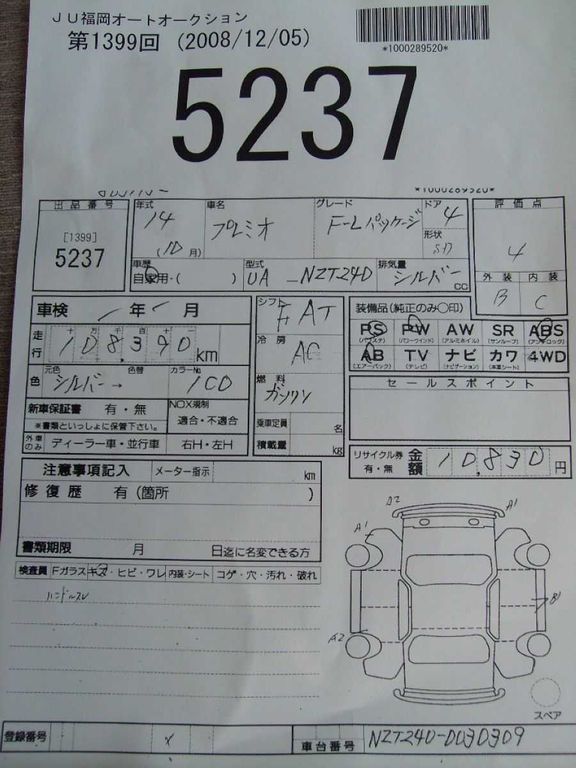 JU福岡オートオークション
第1399回 (2008/12/05)
*1000289520*
5237
*1000289520*
出品番号
[1399]
5237
年式 14 (10月)
車名 プレミオ
グレード F-Lパッケージ
ドア 4
形状 SD
評価点 4
外装 B 内装 C
車歴 自家用・( )
型式 UA - NZT240
排気量 シルバー CC
車検 年 月
シフト F AT
装備品(純正のみ〇印)
走行 十 万 千 百 十 一
108390 km
冷房 AC
PS PW AW SR ABS
(パワステ) (パワーウインド) (アルミホイル) (サンルーフ) (アンチロック)
AB TV ナビ カワ 4WD
(エアーバック) (テレビ) (ナビゲーション) (本革シート)
色 元色 シルバー→ 色替 カラーNo. 1C0
燃料 ガソリン
セールスポイント
新車保証書 有・無
※書類といっしょに保管下さい。
NOX規制
適合・不適合
乗車定員 名
外車のみ ディーラー車・並行車 右H・左H
積載量 kg
リサイクル券 有・無 金額 10,830 円
注意事項記入 メーター指示 km
修復歴 有(箇所 )
書類期限 月 日迄に名変できる方
検査員 Fガラス キズ・ヒビ・ワレ 内装・シート コゲ・穴・汚れ・破れ
ハンドルスレ
A2 A1
A1
B1
A2
スペア
登録番号 車台番号 NZT240-0030309